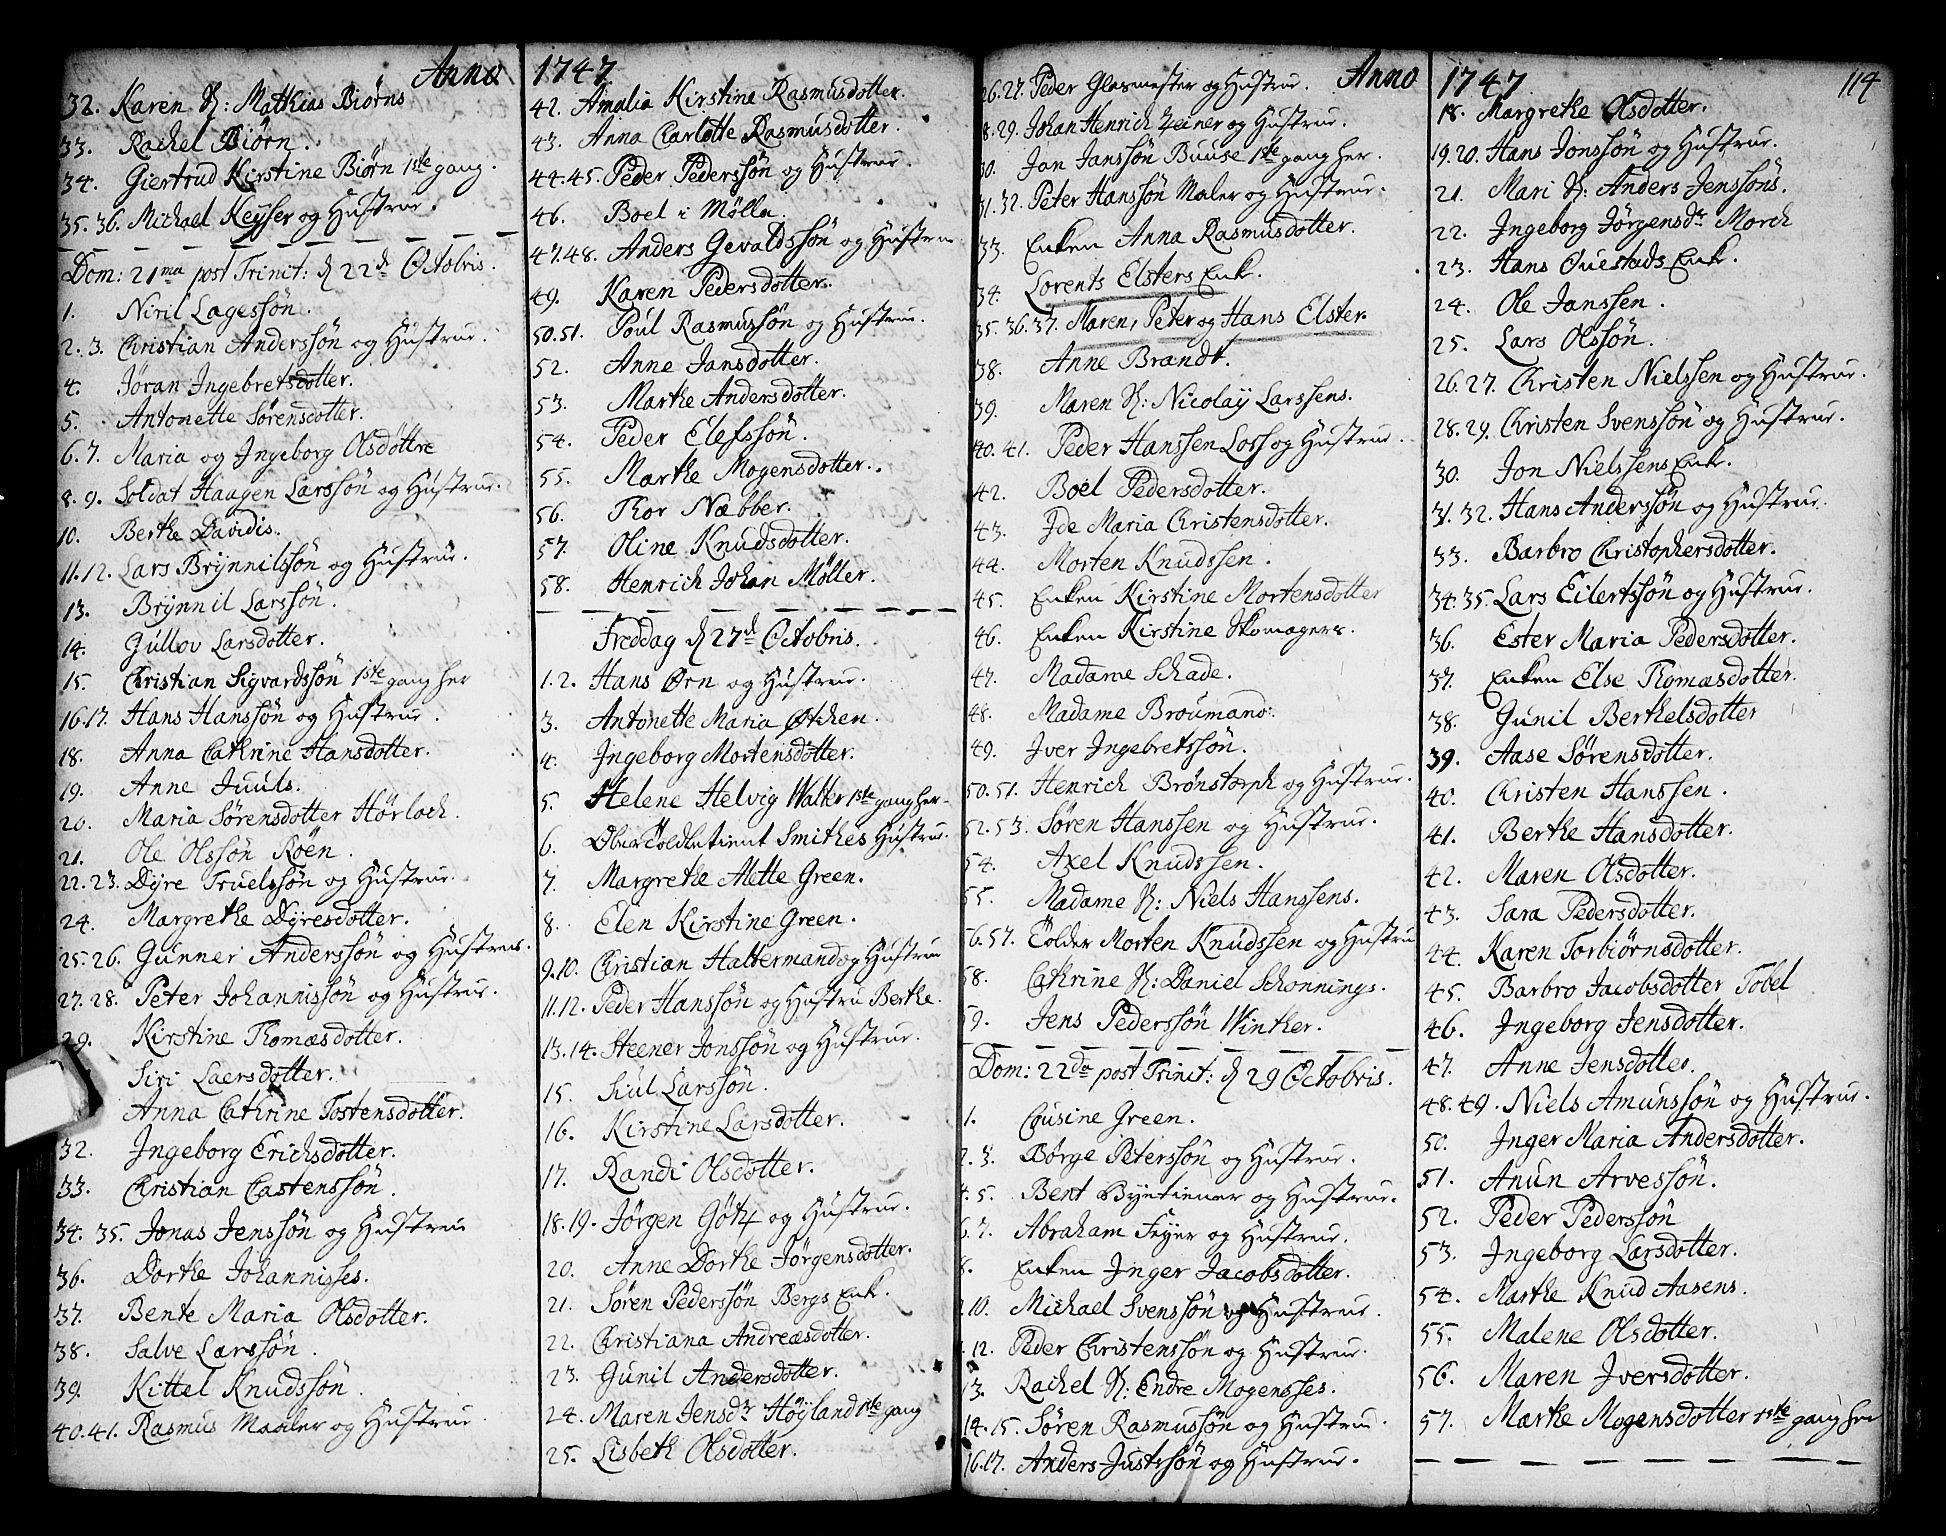 Anno 1747
32. Karen S: Mathias Biørns
33. Rachel Biørn.
34. Giertrud Kirstine Biørn 1ste gang.
35. 36. Michael Keyser og Hustrue.
Dom: 21ma post Trinit: d 22de Octobris.
1. Niril Lagessøn.
2. 3. Christian Anderssøn og Hustrue.
4. Jøran Ingebretsdotter.
5. Antonette Sørensdotter.
6. 7. Maria og Ingeborg Olsdøttre
8. 9. Soldat Haagen Larssøn og Hustrue.
10. Berthe Davidis.
11. 12. Lars Brynnilssøn og Hustrue.
13. Brynnil Larssøn.
14. Gullov Larsdotter.
15. Christian Sigvardssøn 1ste gang her
16. 17. Hans Hanssøn og Hustrue.
18. Anna Cathrine Hansdotter.
19. Anne Juuls.
20. Maria Sørensdotter Hørloch.
21. Ole Olssøn Roen.
22. 23. Dyre Truelssøn og Hustrue.
24. Margrethe Dyresdotter.
25. 26. Gunner Anderssøn og Hustrue.
27. 28. Peter Johannissøn og Hustrue.
29. Kirstine Thomæsdotter.
Siri Laersdotter.
Anna Cathrine Tostensdotter.
32. Ingeborg Erichsdotter.
33. Christian Castenssøn.
34. 35. Jonas Jenssøn og Hustrue
36. Dorthe Johannisses.
37. Bente Maria Olsdotter.
38. Salve Larssøn.
39. Kittel Knudssøn.
40. 41. Rasmus Maaler og Hustrue
42. Amalia Kirstine Rasmusdotter.
43. Anna Charlotte Rasmusdotter.
44. 45. Peder Pederssøn og Hustrue.
46. Boel i Mølla.
47. 48. Anders Gevaldssøn og Hustrue
49. Karen Pedersdotter.
50. 51. Poul Rasmussøn og Hustrue.
52. Anne Jansdotter.
53. Marthe Andersdotter.
54. Peder Elefssøn.
55. Marthe Mogensdotter.
56. Thor Næbber.
57. Oline Knudsdotter.
58. Henrich Johan Møller.
Freddag d 27d Octobris.
1. 2. Hans Ørn og Hustrue.
3. Antonette Maria Øtken.
4. Ingeborg Mortensdotter.
5. Helene Helvig Walter 1ste gang her.
6. Smithes Hustrue.
7. Margrethe Mette Green.
8. Elen Kirstine Green.
9. 10. Christian Haltermand og Hustrue
11. 12. Peder Hanssøn og Hustru Berthe.
13. 14. Steener Jonssøn og Hustrue.
15. Siul Larssøn.
16. Kirstine Larsdotter.
17. Randi Olsdotter.
18. 19. Jørgen Götz og Hustrue.
20. Anne Dorthe Jørgensdotter.
21. Søren Pederssøn Bergs Enk.
22. Christiana Andreæsdotter.
23. Gunil Andersdotter.
24. Maren Jensdr Høyland 1ste gang
25. Lisbeth Olsdotter.
Anno 1747 114
26. 27. Peder Glasmester og Hustrue.
8. 29. Johan Henrich Zeiner og Hustrue.
30. Jan Janssøn Buuse 1ste gang her.
31. 32. Peter Hanssøn Maler og Hustrue.
33. Enken Anna Rasmusdotter.
34. Lorents Elsters Enk.
35. 36. 37. Maren, Peter og Hans Elster.
38. Anne Brandt.
39. Maren S: Nicolaÿ Larssens.
40. 41. Peder Hanssen Loss og Hustrue.
42. Boel Pedersdotter.
43. Ide Maria Christensdotter.
44. Morten Knudssen.
45. Enken Kirstine Mortensdotter
46. Enken Kirstine Skomagers.
47. Madame Schade.
48. Madame Broumand.
49. Iver Ingebretssøn.
50. 51. Henrich Brønstorph og Hustrue.
52. 53. Søren Hanssen og Hustrue.
54. Axel Knudssen.
55. Madame S: Niels Hanssens.
56. 57. Morten Knudssen og Hustru
58. Cathrine S: Daniel Schønnings.
59. Jens Pederssøn Winther.
Dom: 22da post Trinit: d 29 Octobris.
1. Cousine Green.
2. 3. Børge Peterssøn og Hustrue.
4. 5. Bent Bytiener og Hustrue.
6. 7. Abraham Feyer og Hustrue.
8. Enken Inger Jacobsdotter.
10. Michael Svenssøn og Hustrue.
12. Peder Christenssøn og Hustrue.
13. Rachel S: Endre Mogensses.
14. 15. Søren Rasmussøn og Hustru
16. 17. Anders Justssøn og Hustrue.
18. Margrethe Olsdotter.
19. 20. Hans Jonssøn og Hustrue.
21. Mari S: Anders Jenssøns.
22. Ingeborg Jørgensdr Morch
23. Hans Ouestads Enk.
24. Ole Janssen.
25. Lars Olssøn.
26. 27. Christen Nielssen og Hustrue.
28. 29. Christen Svenssøn og Hustrue.
30. Jon Nielssens Enk.
31. 32. Hans Anderssøn og Hustrue.
33. Barbro Christophersdotter.
34. 35. Lars Eilertssøn og Hustrue.
36. Ester Maria Pedersdotter.
37. Enken Else Thomæsdotter.
38. Gunil Berthelsdotter
39. Aase Sørensdotter.
40. Christen Hanssen.
41. Berthe Hansdotter.
42. Maren Olsdotter.
43. Sara Pedersdotter.
44. Karen Torbiørnsdotter.
45. Barbro Jacobsdotter Tobel
46. Ingeborg Jensdotter.
47. Anne Jensdotter.
48. 49. Niels Amunssøn og Hustrue.
50. Inger Maria Andersdotter.
51. Anun Arvessøn.
52. Peder Pederssøn
53. Ingeborg Larsdotter.
54. Marthe Knud Aasens.
55. Malene Olsdotter.
56. Maren Iversdotter.
57. Marthe Mogensdotter 1ste gang her